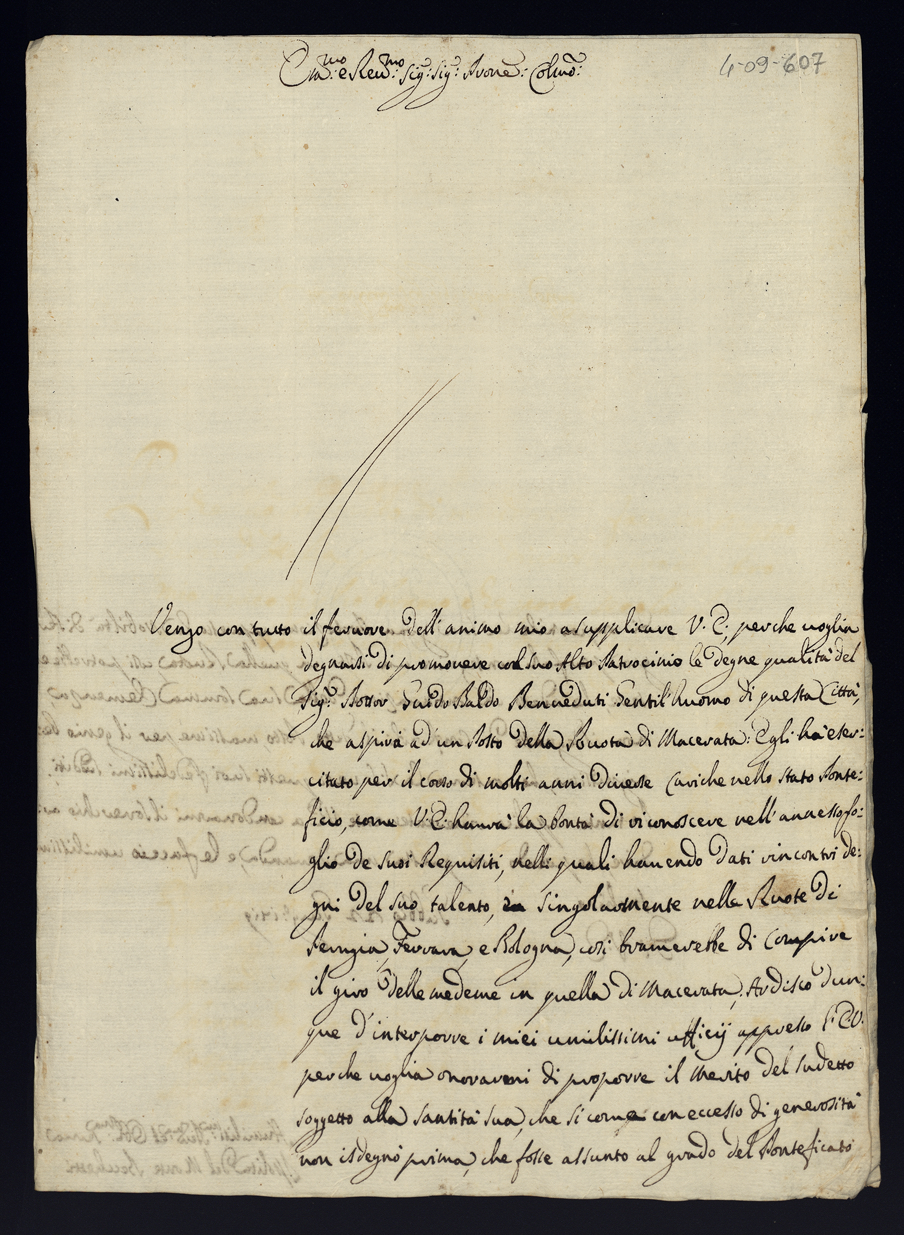 Em:mo e Rev:mo Sig: Sig: Prone: Colmo:
4-09-607
Vengo con tutto il fervore dell'animo mio a supplicare V. E; perche voglia
degnarsi di promovere col suo Alto Patrocinio le degne qualità del
Sig: Dottor Guido Baldo Benveduti Gentil'huomo di questa Città,
che aspira ad un Posto della Ruota di Macerata: Egli hà eser-
citato per il corso di molti anni diverse Cariche nello stato Ponte-
ficio, come V: E: havrà la bontà di riconoscere nell'annesso fo-
glio de suoi Requisiti, nelli quali havendo dati rincontri de-
gni del suo talento, singolarmente nelle Ruote di
Perugia, Ferrara, e Bologna, così bramerebbe di Compire
il giro delle medeme in quella di Macerata; Ardisco dun-
que d'interporre i miei umilissimi ufficij appresso l'E.V.
perche voglia onorarmi di proporre il Merito del sudetto
soggetto alla Santità sua, che si come con eccesso di generosità
non isdegnò prima, che fosse assunto al grado del Ponteficato